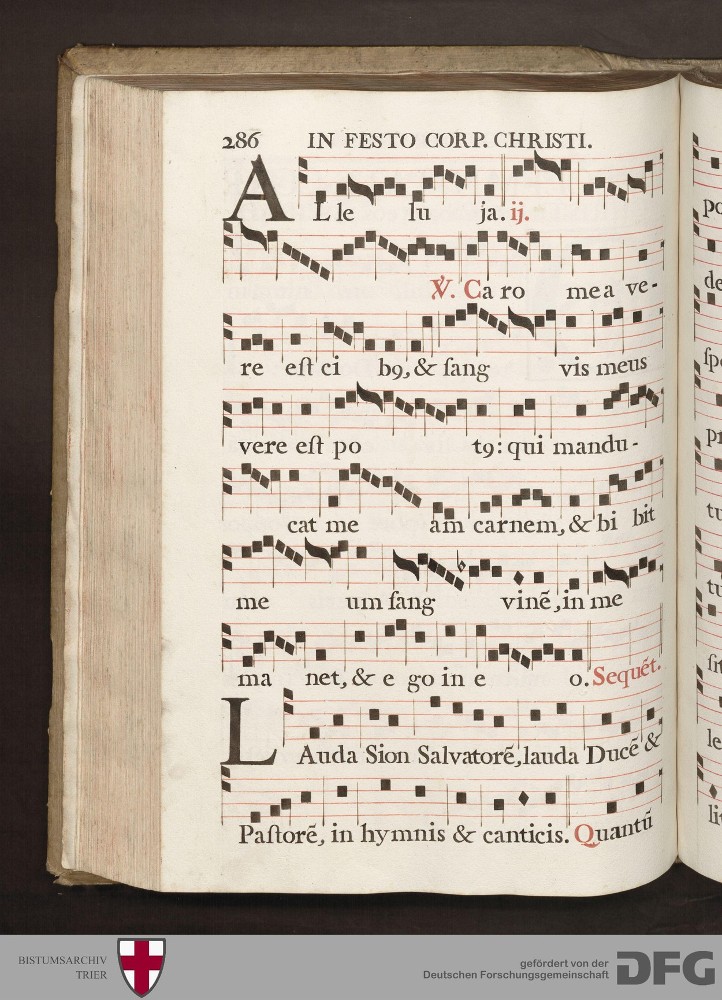 286 IN FESTO CORP. CHRISTI.
ALle lu ja. ij.
℣. Caro mea ve-
re eſt ci b9, & ſang vis meus
vere eſt po t9: qui mandu-
cat me am carnem, & bi bit
me um ſang vinẽ, in me
ma net, & e go in e o. Sequẽt.
LAuda Sion Salvatorẽ, lauda Ducẽ &
Paſtorẽ, in hymnis & canticis. Quantũ
BISTUMSARCHIV
TRIER
gefördert von der
Deutschen Forschungsgemeinschaft
DFG